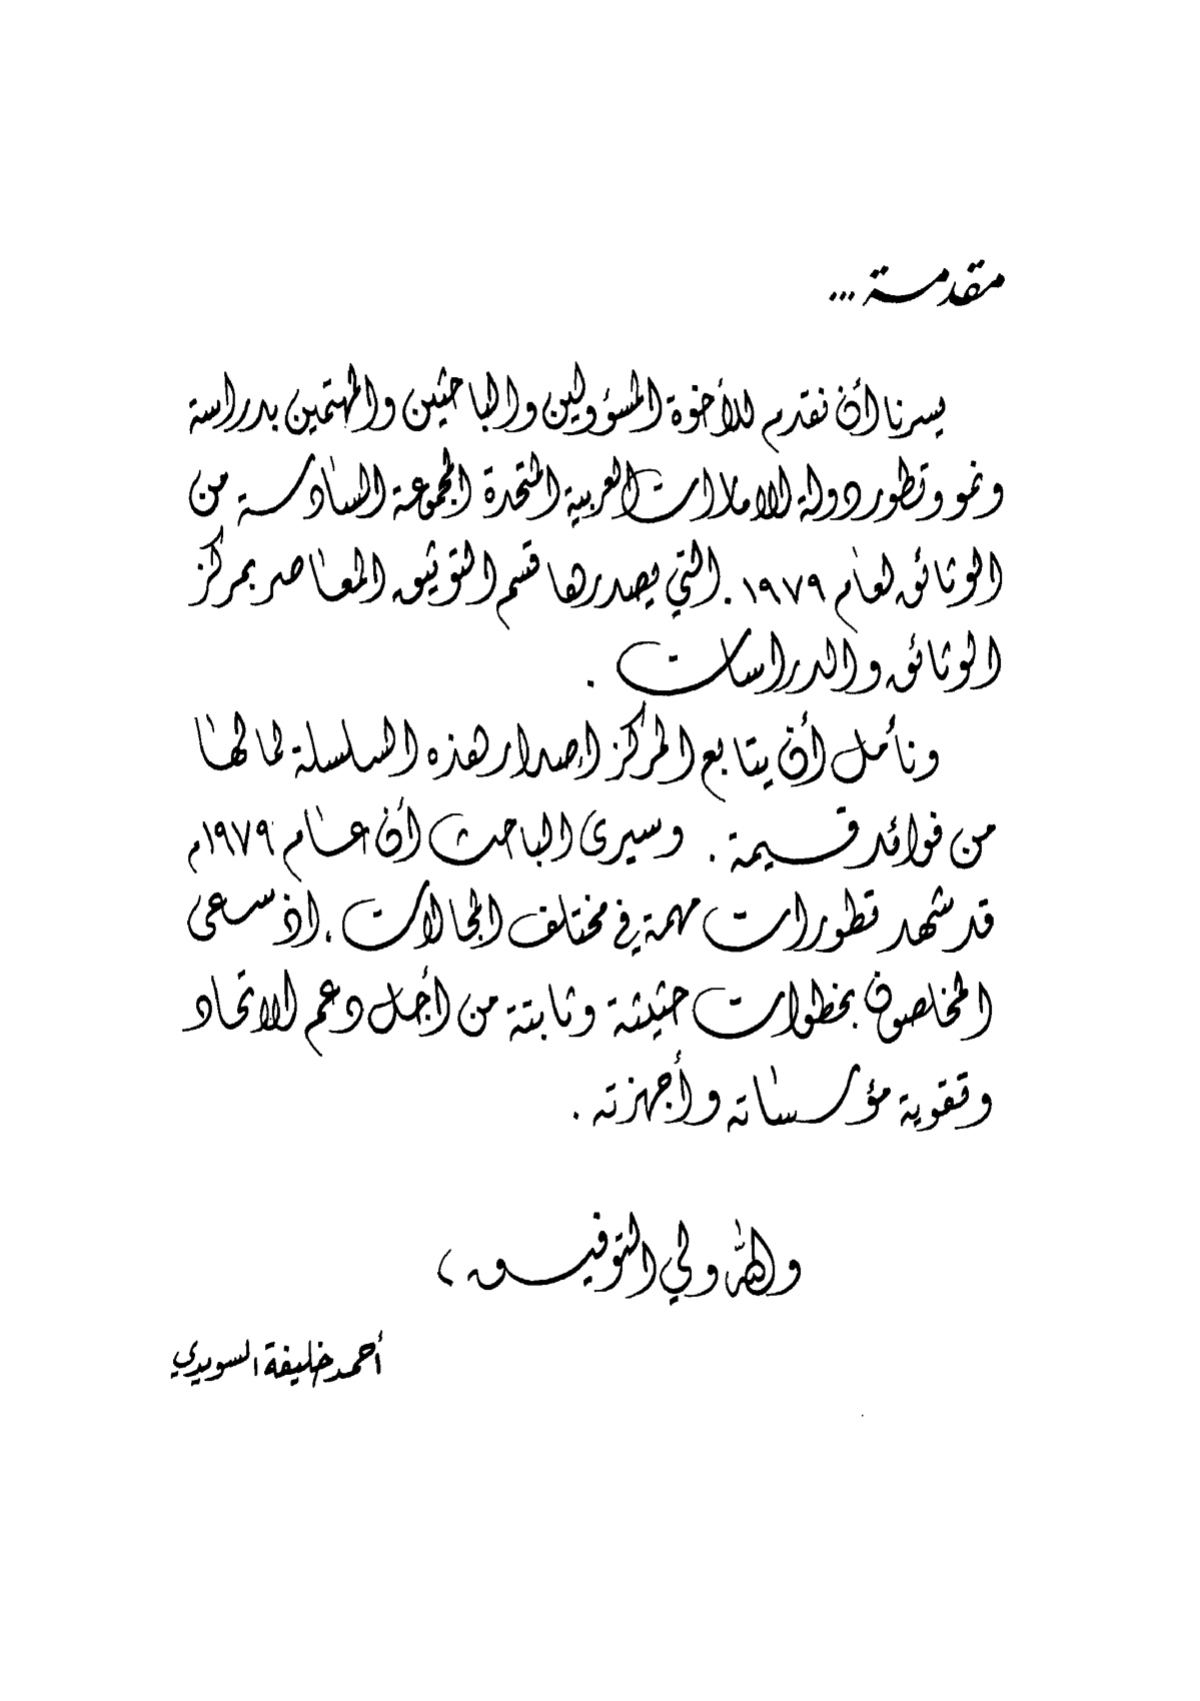 مقدمة ...
يسرنا أن نقدم للأخوة المسؤولين والباحثين والمهتمين بدراسة
ونمو وتطور دولة الامارات العربية المتحدة المجموعة السادسة من
الوثائق لعام ١٩٧٩ . التي يصدرها قسم التوثيق المعاصر بمركز
الوثائق والدراسات .
ونأمل أن يتابع المركز إصدار هذه السلسلة لما لها
من فوائد قيمة . وسيرى الباحث أن عام ١٩٧٩م
قد شهد تطورات مهمة في مختلف المجالات ، اذ سعى
المخلصون بخطوات حثيثة وثابتة من أجل دعم الاتحاد
وتقوية مؤسساته وأجهزته .
والله ولي التوفيق ،
أحمد خليفة السويدي